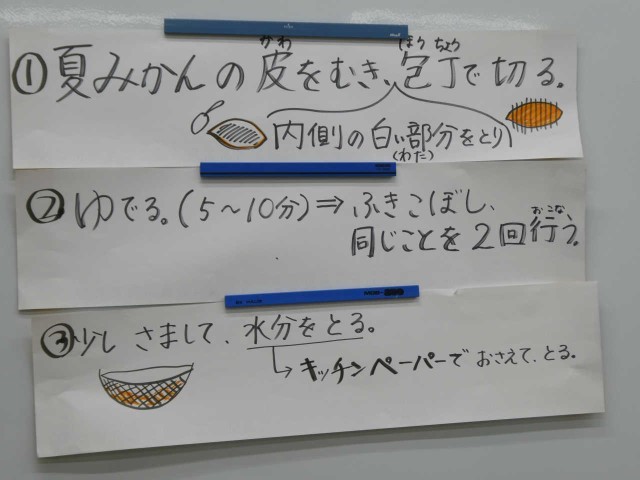 ①夏みかんの皮をむき、包丁で切る。
かわ
ほうちょう
内側の白い部分をとり
(わた)
②ゆでる。(5〜10分)⇒ふきこぼし、
同じことを2回行う。
おこな
③少しさまして、水分をとる。
→キッチンペーパーでおさえて、とる。